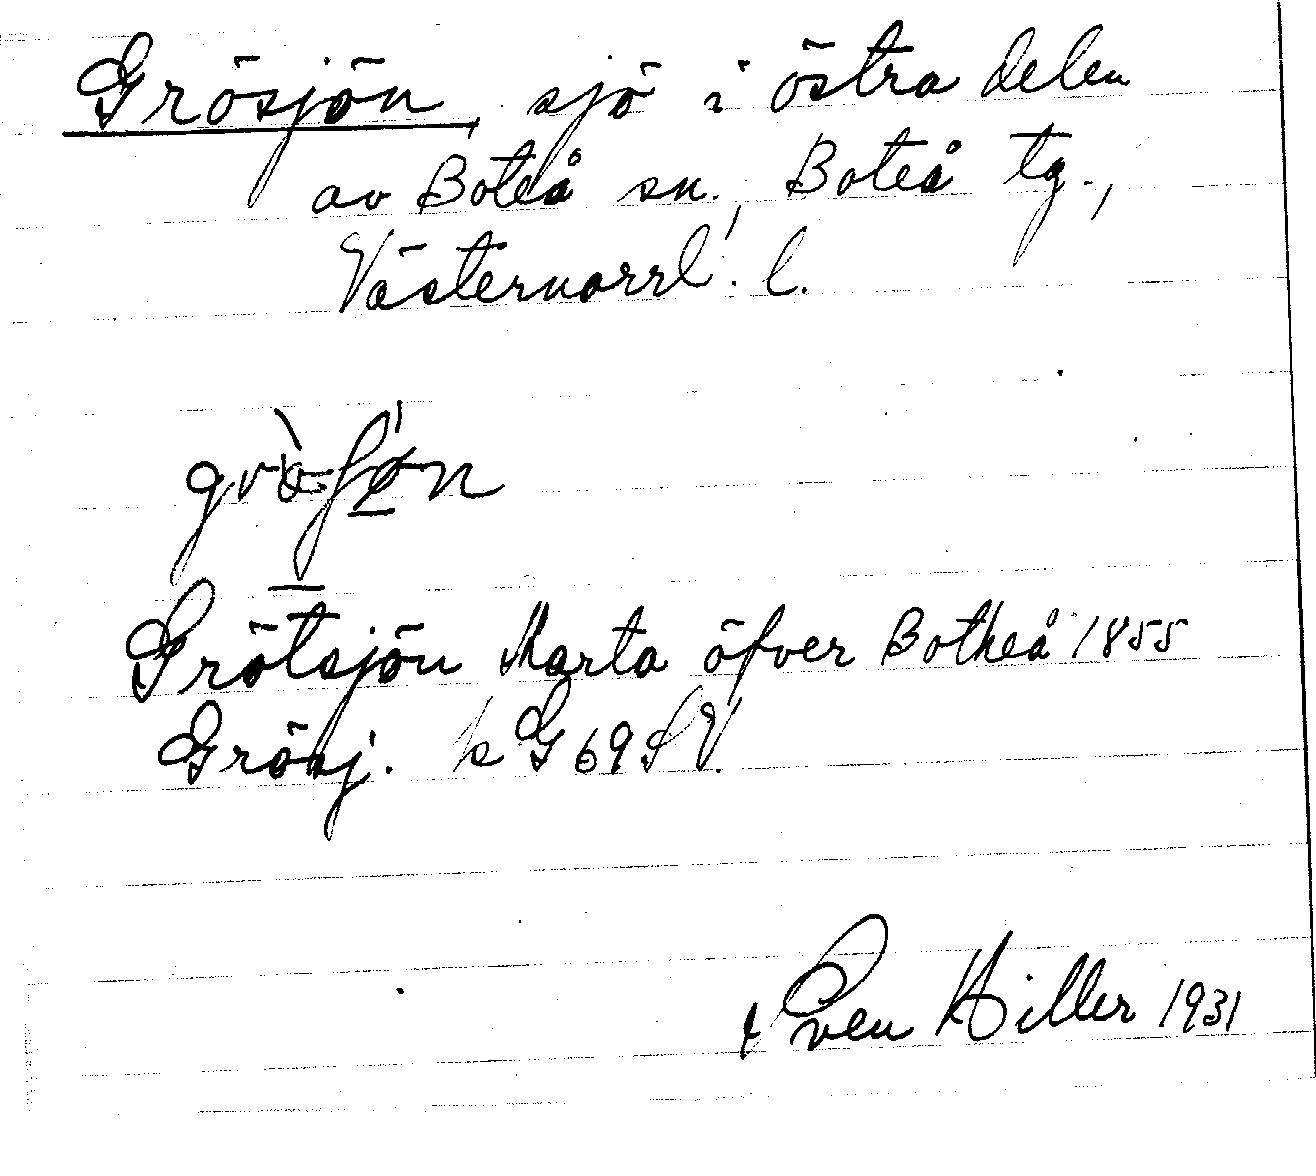 Grösjön, sjö i östra delen
av Boteå sn., Boteå tg.,
Västernorrl. l.
Grötsjön Karta öfver Botheå 1855
Grösj. k G 69 S V.
Sven Hiller 1931